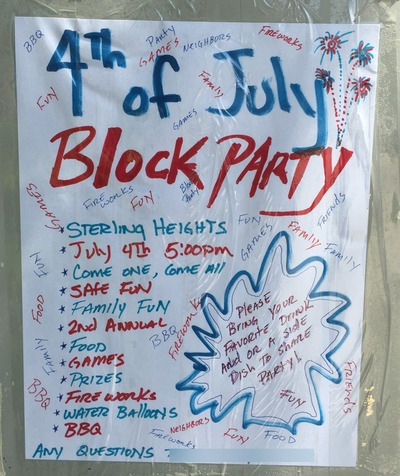 BBQ
PARTY
GAMES
NEIGHBORS
FIREWORKS
4th of July
FUN
FAMILY
GAMES
Block PARTY
GAMES
FIRE WORKS
FUN
Block Party
FRIENDS
FUN
GAMES
FAMILY
FAMILY
* STERLING HEIGHTS
* July 4th 5:00pm
* COME ONE, COME All
* SAFE FUN
* FAMILY FUN
* 2ND ANNUAL
* FOOD
* GAMES
* PRIZES
* FIREWORKS
* WATER BALLOONS
* BBQ
FUN
FOOD
FAMILY
BBQ
BBQ
FIREWORKS
PLEASE
BRING YOUR
FAVORITE DRINK
AND OR A SIDE
DISH TO SHARE
PARTY!
FUN
FRIENDS
NEIGHBORS
FIREWORKS
FUN
FOOD
ANY QUESTIONS ?